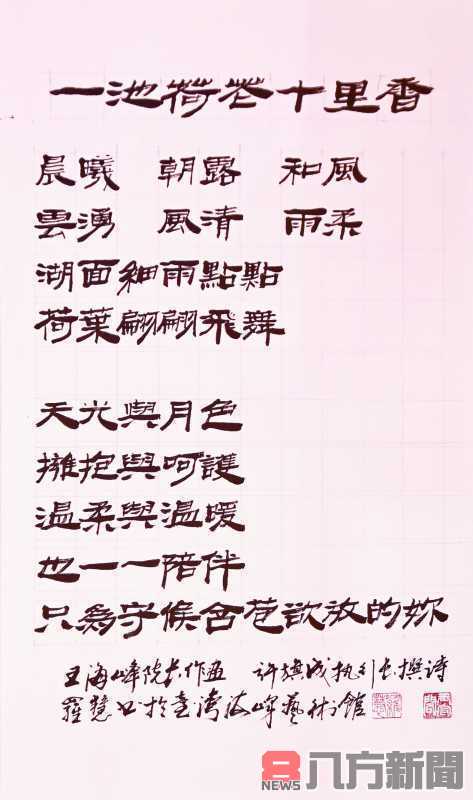 一池荷花十里香
晨曦 朝露 和風
雲湧 風清 雨柔
湖面細雨點點
荷葉翩翩飛舞
天光與月色
擁抱與呵護
溫柔與溫暖
也一一陪伴
只為守候含苞欲放的妳
王海峰院長作画 許旗成执行长撰詩
羅慧 书於臺灣海峰藝術館
NEWS 八方新聞